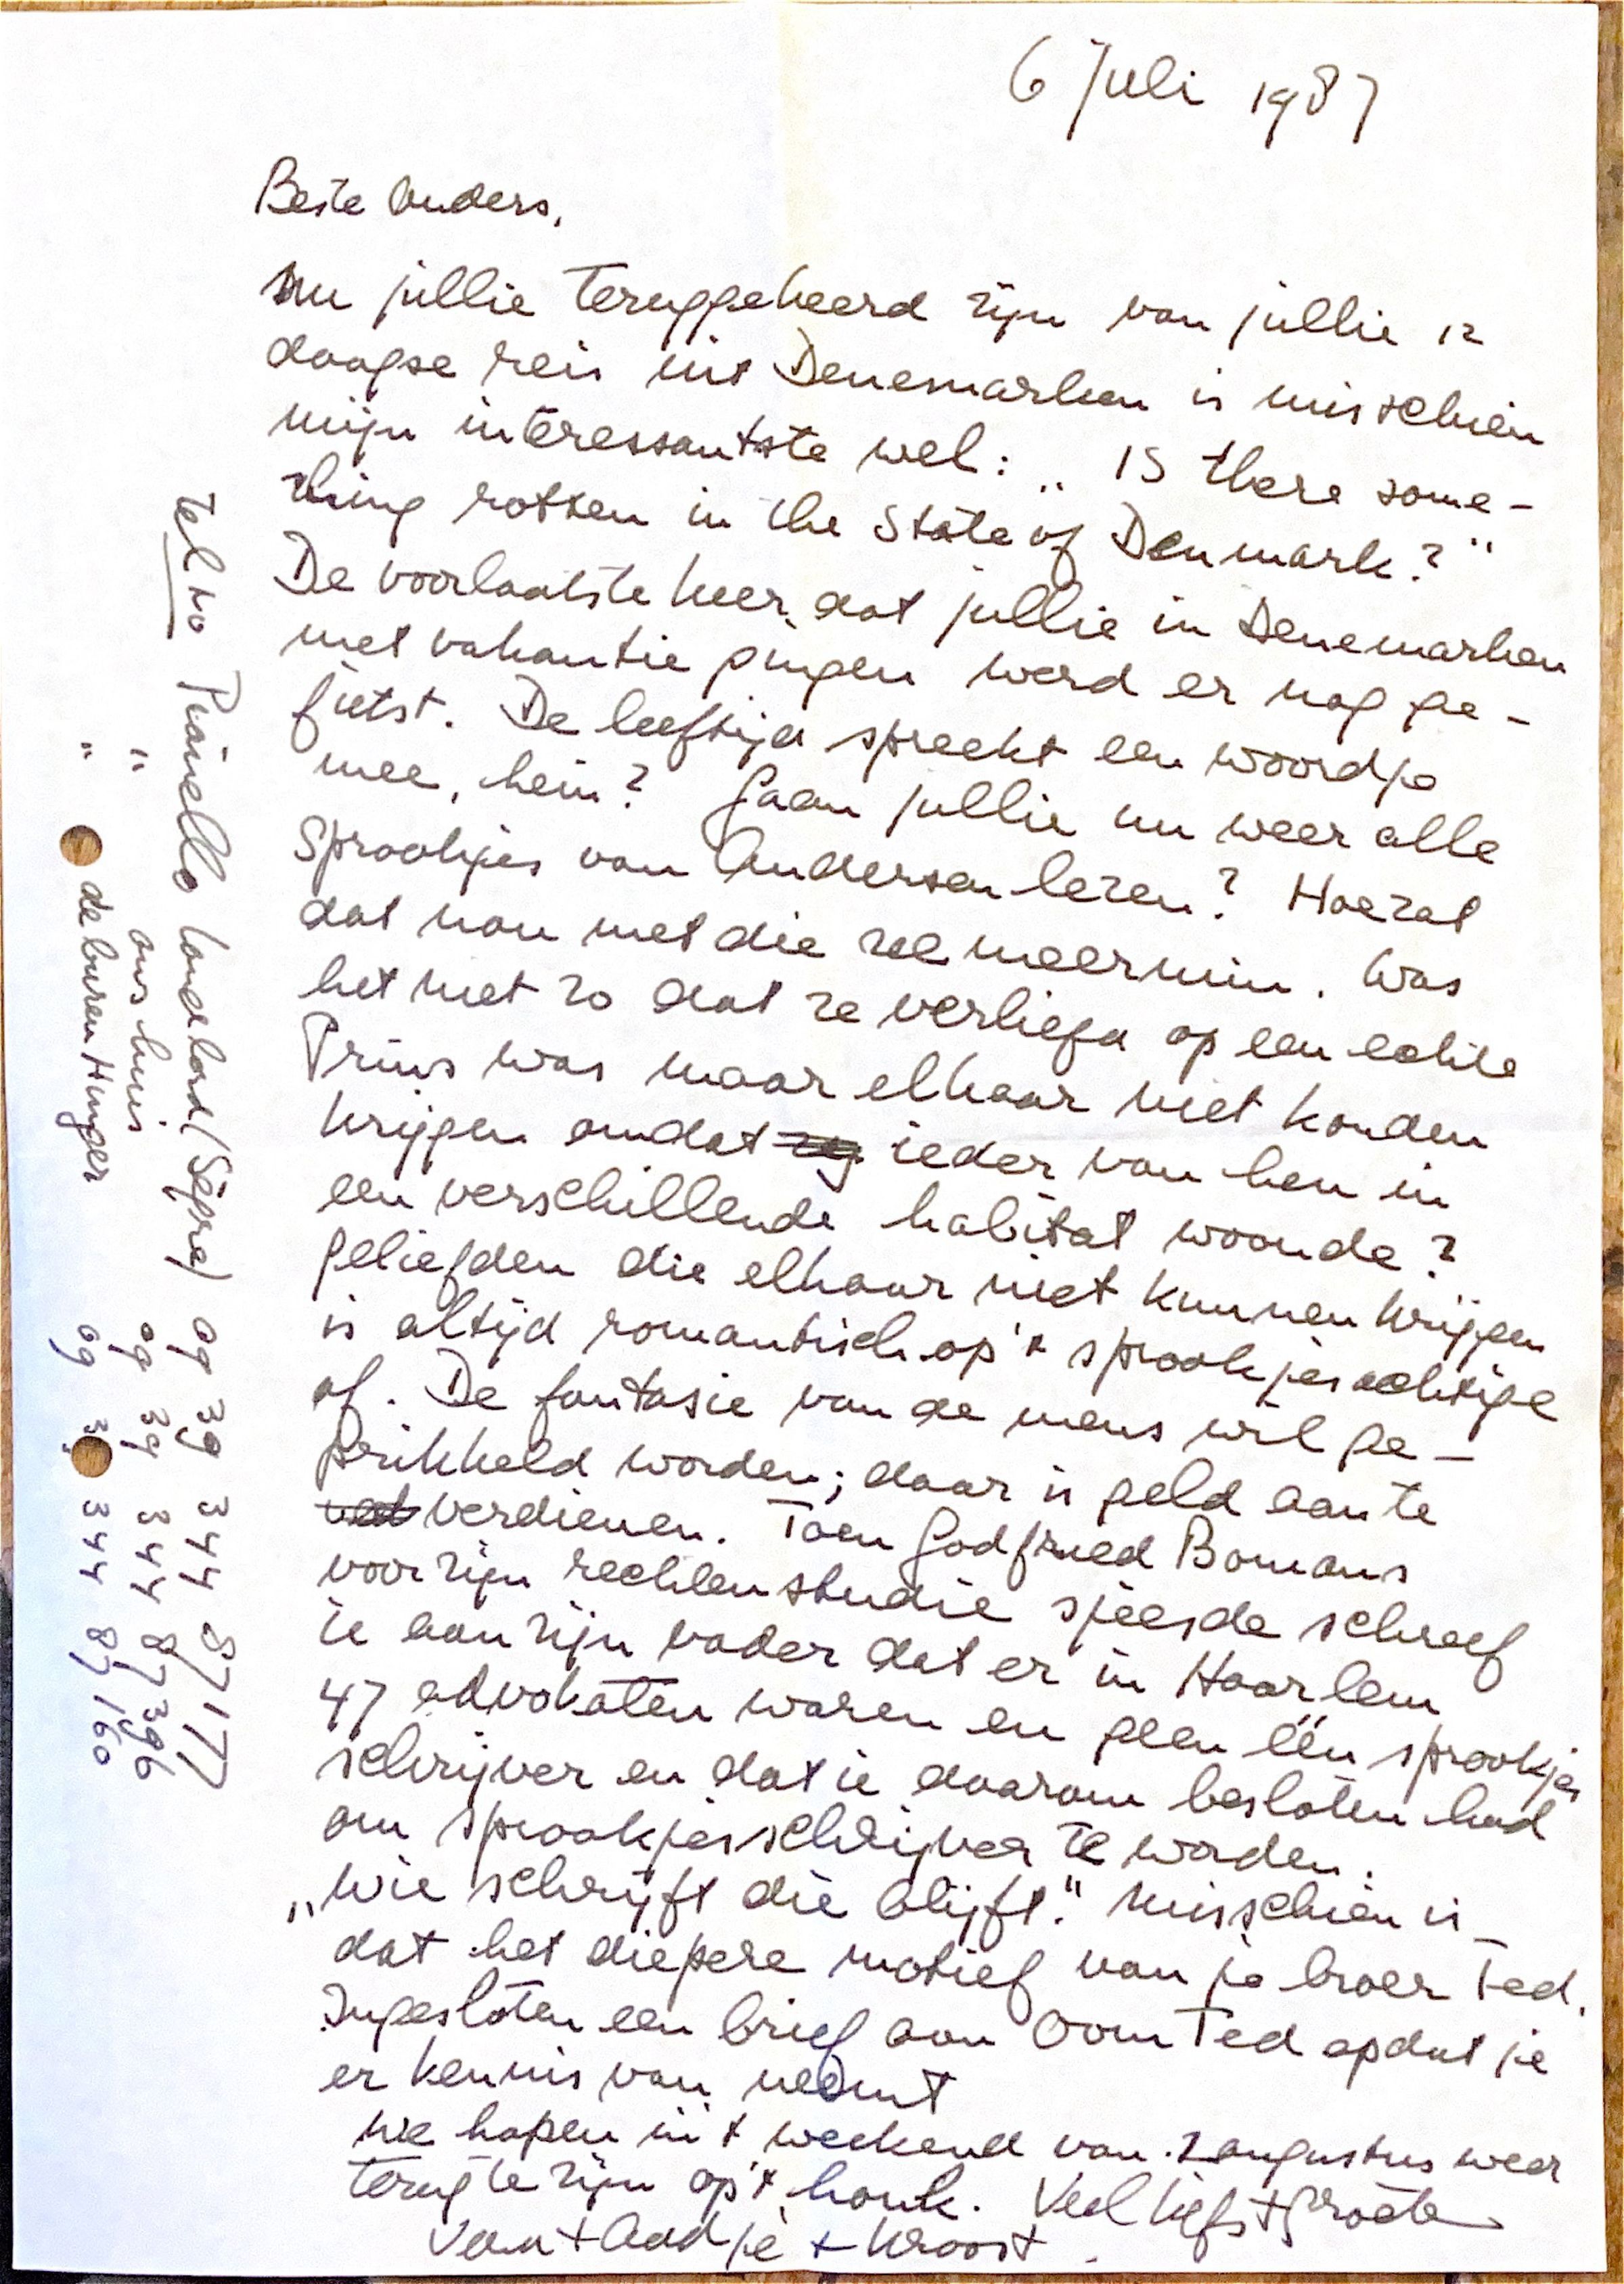 6 juli 1987
Beste Ouders,
Nu jullie teruggekeerd zijn van jullie 12
daagse reis uit Denemarken is misschien
mijn interessantste wel: „ is there some-
thing rotten in the state of Denmark?"
De voorlaatste keer dat jullie in Denemarken
met vakantie gingen werd er nog ge-
fietst. De leeftijd spreekt een woordje
mee, hein? Gaan jullie nu weer alle
sprookjes van Andersen lezen? Hoe zat
dat nou met die zee meermin. Was
het niet zo dat ze verliefd op een echte
Prins was maar elkaar niet konden
krijgen omdat ieder van hen in
een verschillende habitat woonde?
Geliefden die elkaar niet kunnen krijgen
is altijd romantisch op 't sprookjesachtige
af. De fantasie van de mens wil ge-
prikkeld worden; daar is geld aan te
verdienen. Toen Godfried Bomans
voor zijn rechtenstudie sjeesde schreef
ie aan zijn vader dat er in Haarlem
47 advokaten waren en geen één sprookjes
schrijver en dat ie daarom besloten had
om sprookjesschrijver te worden.
„Wie schrijft die blijft." Misschien is
dat het diepere motief van je broer Ted.
Ingesloten een brief aan Oom Ted opdat je
er kennis van neemt
We hopen in 't weekend van 2 augustus weer
terug te zijn op 't honk. Veel liefs + groeten
van + Aadje + kroost.
tel no Pianello landlord (Segre) 09 39 344 87177
" ons huis 09 39 344 87396
" de buren Hunger 09 3 344 87160